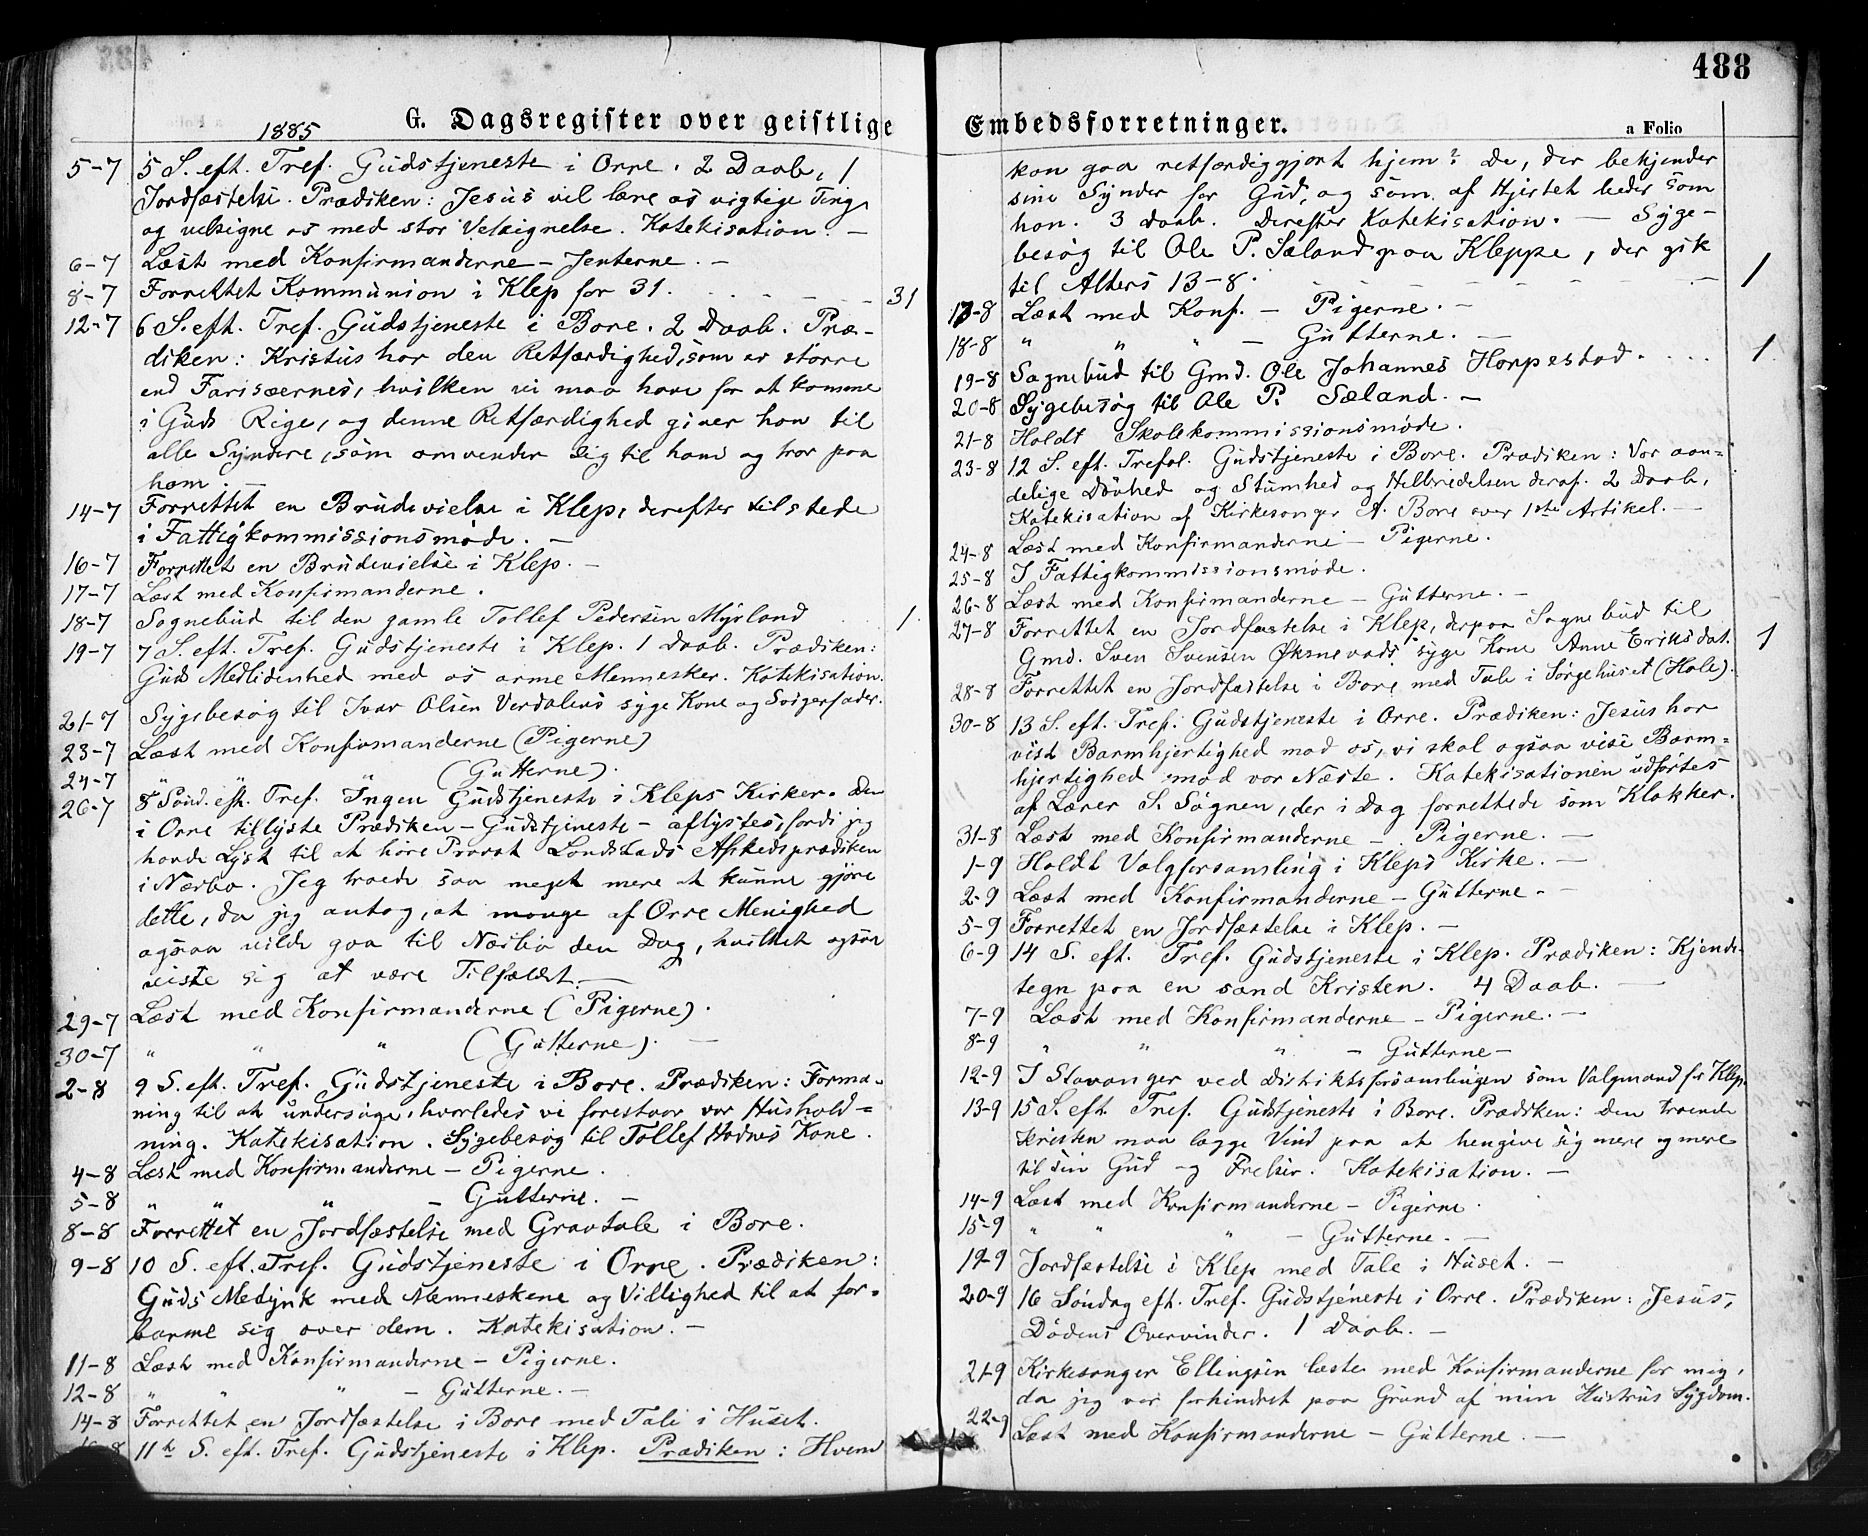 488
G. Dagsregister over geistlige
1885
5-7 5 S. eft. Tref. Gudstjeneste i Orre. 2 Daab, 1
Jordfæstelse. Prædiken: Jesus vil lære os vigtige Ting
og velsigne os med stor Velsignelse. Katekisation. —
6-7 Læst med Konfirmanderne – Jenterne. —
8-7 Forrettet Kommunion i Klep for 31. 31
12-7 6 S. eft. Tref. Gudstjeneste i Bore. 2 Daab. Præ-
diken: Kristus har den Retfærdighed, som er större
end Farisæernes, hvilken vi maa have for at komme
i Guds Rige, og denne Retfærdighed giver han til
alle Syndere, som omvender sig til ham og tror paa
ham. —
14-7 Forrettet en Brudevielse i Klep, derefter tilstede
i Fattigkommissionsmøde. —
16-7 Forrettet en Brudevielse i Klep. —
17-7 Læst med Konfirmanderne.
18-7 Sognebud til den gamle Tollef Pedersen Myrland 1.
19-7 7 S. eft. Tref. Gudstjeneste i Klep. 1 Daab. Prædiken:
Guds Medlidenhed med os arme Mennesker. Katekisation.
21-7 Sygebesøg til Ivar Olsen Verdalens syge Kone og Svigerfader.
23-7 Læst med Konfirmanderne (Pigerne)
24-7 " " " (Gutterne).
26-7 8 Sønd. eft. Tref. Ingen Gudstjeneste i Kleps Kirker. Den
i Orre tillyste Prædiken – Gudstjeneste – aflystes, fordi jeg
havde Lyst til at høre Provst Landstads Afskedsprædiken
i Nærbø. Jeg troede saa meget mere at kunne gjøre
dette, da jeg antog, at mange af Orre Menighed
ogsaa vilde gaa til Nærbø den Dag, hvilket ogsaa
viste sig at være Tilfældet. —
29-7 Læst med Konfirmanderne (Pigerne).
30-7 " " " (Gutterne). —
2-8 9 S. eft. Tref. Gudstjeneste i Bore. Prædiken: Forma-
ning til at undersøge, hvorledes vi forestaar vor Hushold-
ning. Katekisation. Sygebesøg til Tollef Hodnes Kone.
4-8 Læst med Konfirmanderne – Pigerne.
5-8 " " " – Gutterne. —
8-8 Forrettet en Jordfæstelse med Gravtale i Bore.
9-8 10 S. eft. Tref. Gudstjeneste i Orre. Prædiken:
Guds Medynk med Menneskene og Villighed til at for-
barme sig over dem. Katekisation. —
11-8 Læst med Konfirmanderne – Pigerne.
12-8 " " " – Gutterne. —
14-8 Forrettet en Jordfæstelse i Bore med Tale i Huset.
16-8 11te S. eft. Tref. Gudstjeneste i Klep. Prædiken: Hvem
Embedsforretninger.
a Folio
kan gaa retfærdiggjort hjem? De, der bekjender
sine Synder for Gud, og som af Hjertet beder som
han. 3 Daab. Derefter Katekisation. — Syge-
besøg til Ole P. Sæland paa Kleppe, der gik
til Alters 13-8. 1
17-8 Læst med Konf. – Pigerne. —
18-8 " " " – Gutterne. —
19-8 Sognebud til Gmd. Ole Johannes Horpestad. 1.
20-8 Sygebesøg til Ole P. Sæland. —
21-8 Holdt Skolekommissionsmøde.
23-8 12 S. eft. Trefol. Gudstjeneste i Bore. Prædiken: Vor aan-
delige Døvhed og Stumhed og Helbredelsen deraf. 2 Daab,
Katekisation af Kirkesanger A. Bore over 1ste Artikel. —
24-8 Læst med Konfirmanderne – Pigerne.
25-8 I Fattigkommissionsmøde.
26-8 Læst med Konfirmanderne – Gutterne. —
27-8 Forrettet en Jordfæstelse i Klep, derpaa Sognebud til
Gmd. Sven Svensen Øksnevads syge Kone Anne Eriksdat. 1
28-8 Forrettet en Jordfæstelse i Bore med Tale i Sørgehuset (Hole).
30-8 13 S. eft. Tref. Gudstjeneste i Orre. Prædiken: Jesus har
vist Barmhjertighed mod os, vi skal ogsaa vise Barm-
hjertighed mod vor Næste. Katekisationen udførtes
af Lærer S. Søgnen, der i Dag forrettede som Klokker.
31-8 Læst med Konfirmanderne – Pigerne. —
1-9 Holdt Valgforsamling i Kleps Kirke. —
2-9 Læst med Konfirmanderne – Gutterne. —
5-9 Forrettet en Jordfæstelse i Klep. —
6-9 14 S. eft. Tref. Gudstjeneste i Klep. Prædiken: Kjende-
tegn paa en sand Kristen. 4 Daab. —
7-9 Læst med Konfirmanderne – Pigerne. —
8-9 " " " – Gutterne –
12-9 I Stavanger ved Distriktsforsamlingen som Valgmand for Klep.
13-9 15 S. eft. Tref. Gudstjeneste i Bore. Prædiken: Den troende
Kristen maa lægge Vind paa at hengive sig mere og mere
til sin Gud og Frelser. Katekisation. —
14-9 Læst med Konfirmanderne – Pigerne.
15-9 " " " – Gutterne. —
19-9 Jordfæstelse i Klep med Tale i Huset. —
20-9 16 Søndag eft. Tref. Gudstjeneste i Orre. Prædiken: Jesus,
Dødens Overvinder. 1 Daab. —
21-9 Kirkesanger Ellingsen læste med Konfirmanderne for mig,
da jeg var forhindret paa Grund af min Hustrus Sygdom.
22-9 Læst med Konfirmanderne – Gutterne. —